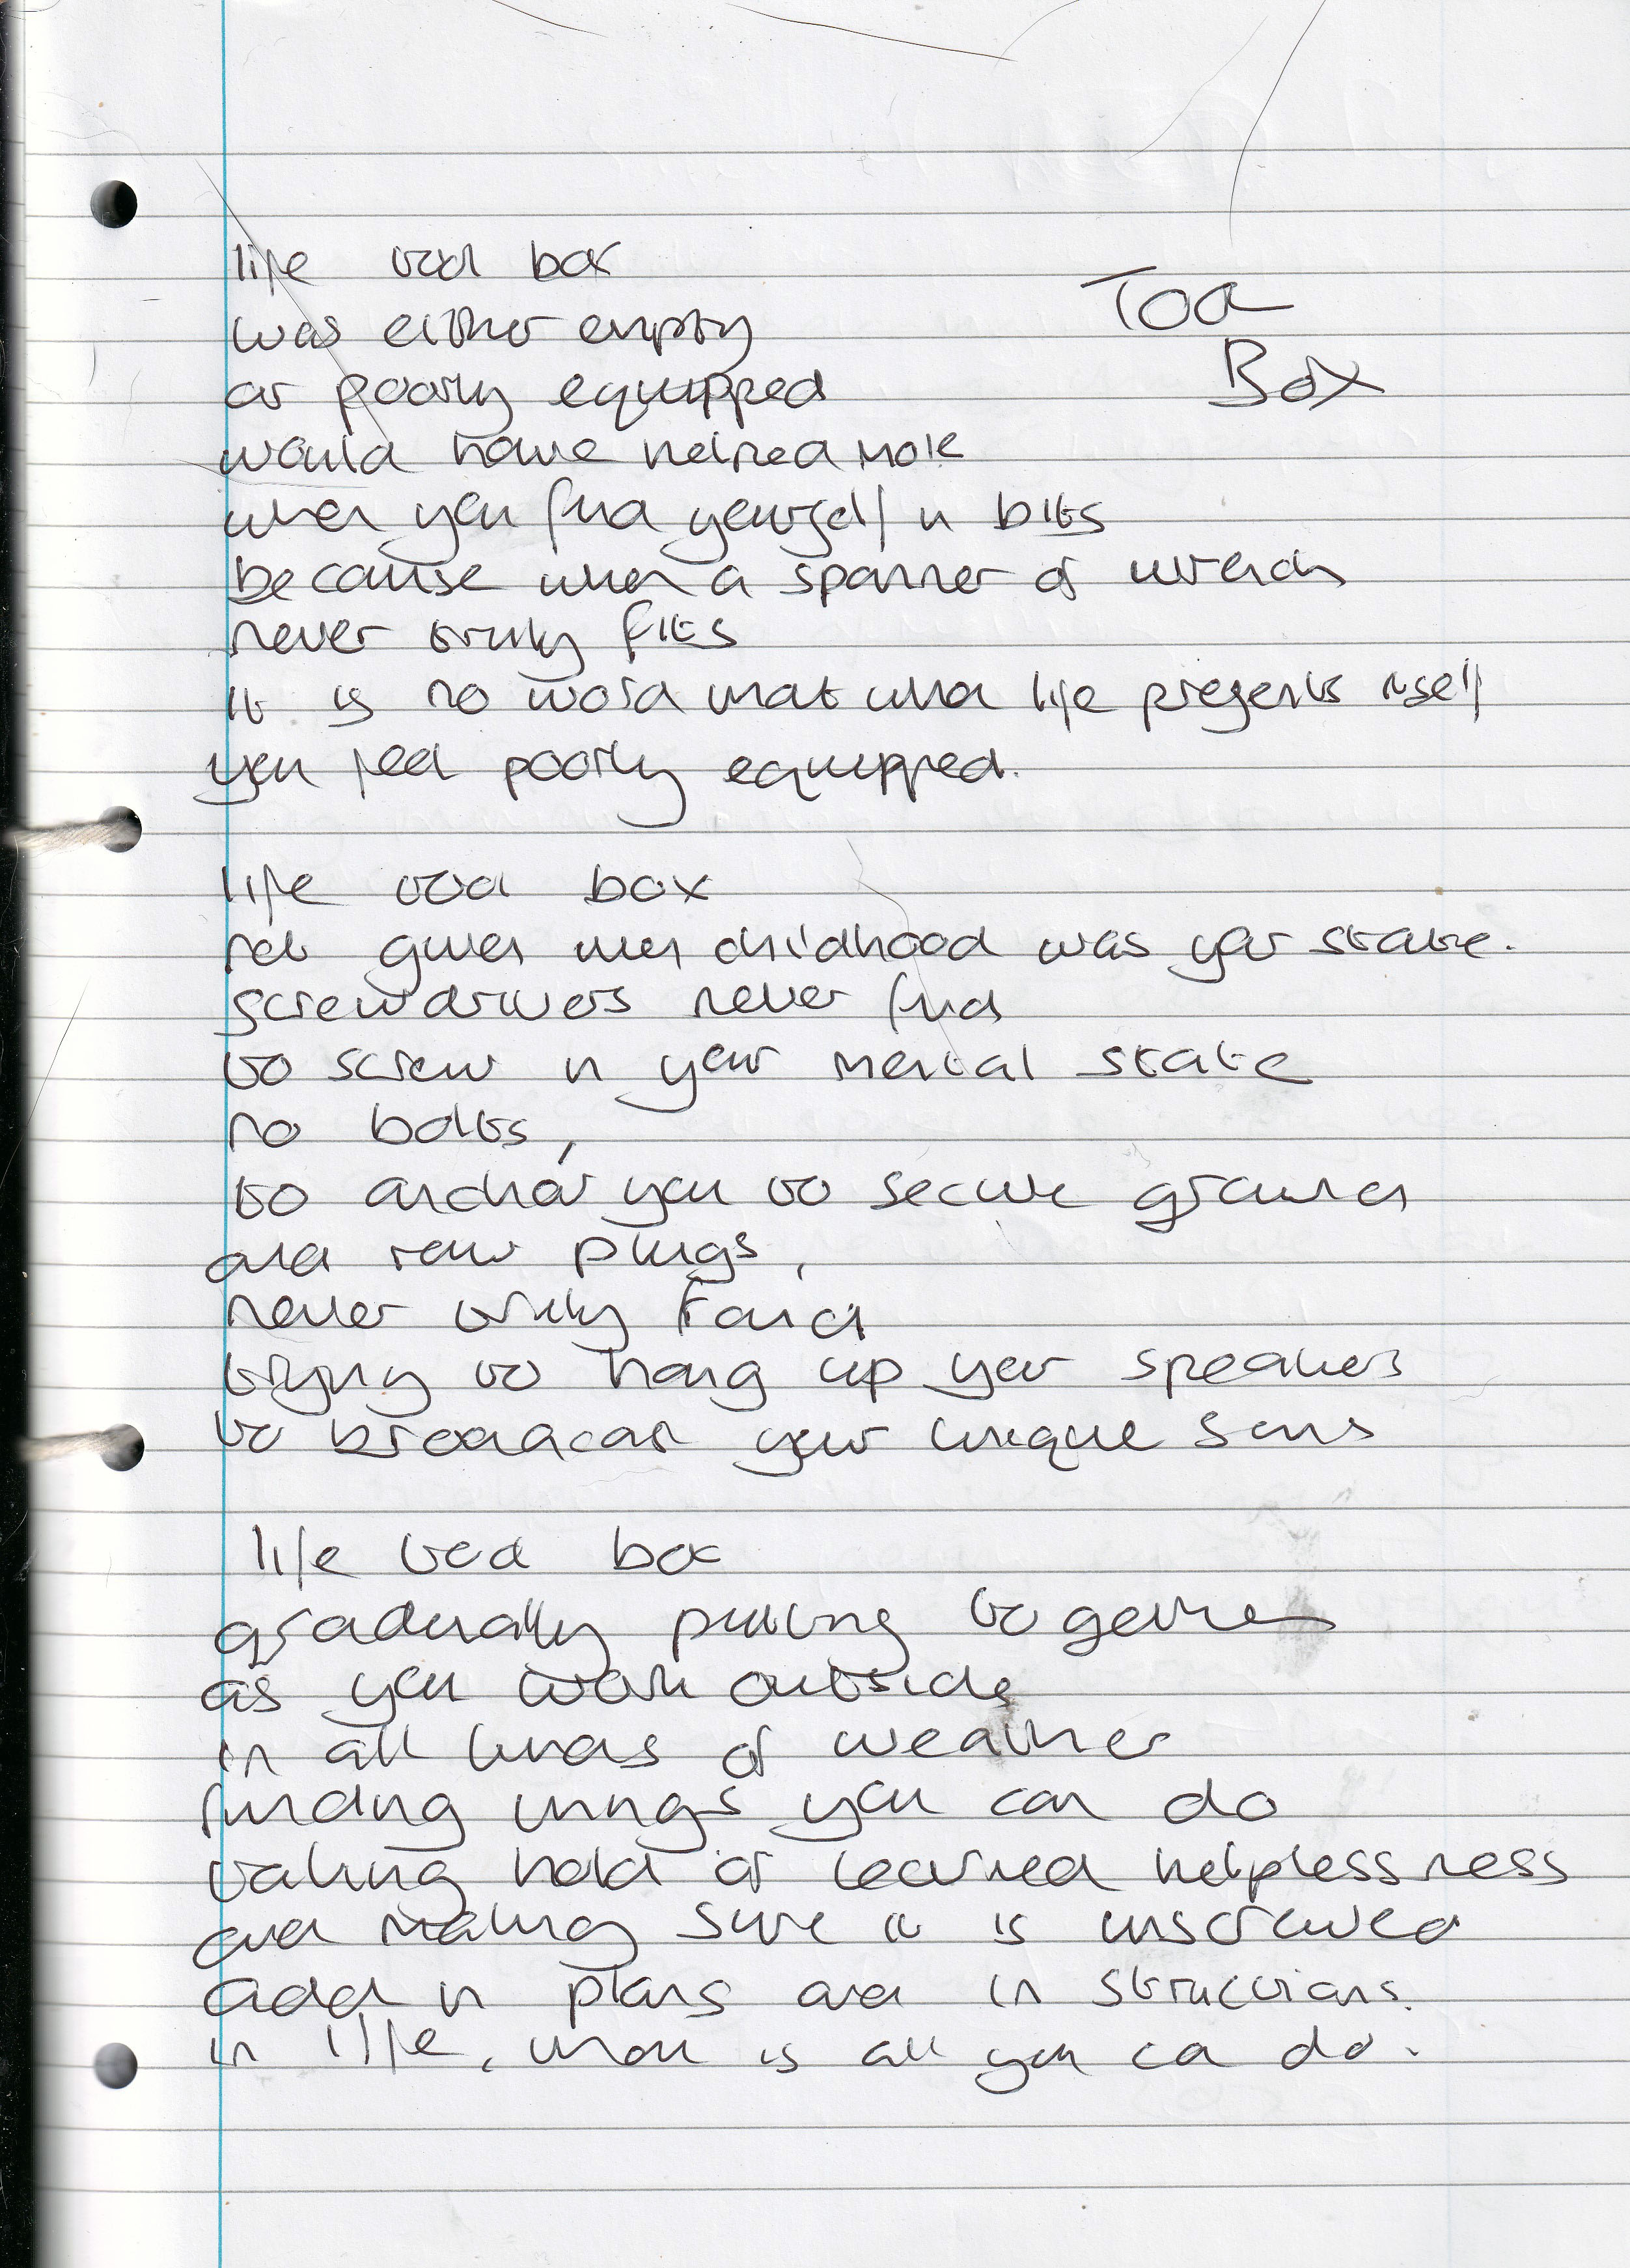 Tool
Box
life tool box
was either empty
or poorly equipped
would have helped more
when you find yourself in bits
because when a spanner or wrench
never truly fits
it is no word that when life presents itself
you feel poorly equipped.
life tool box
not given when childhood was your state.
screwdrivers never find
to screw in your mental state
no bolts,
to anchor you to secure ground
and raw plugs,
never truly found
trying to hang up your speakers
to broadcast your unique
life tool box
gradually putting together
as you work outside
in all kinds of weather
finding things you can do
taking hold of learned helplessness
and making sure it is unscrewed
add in plans and in structions.
in life, that is all you can do.